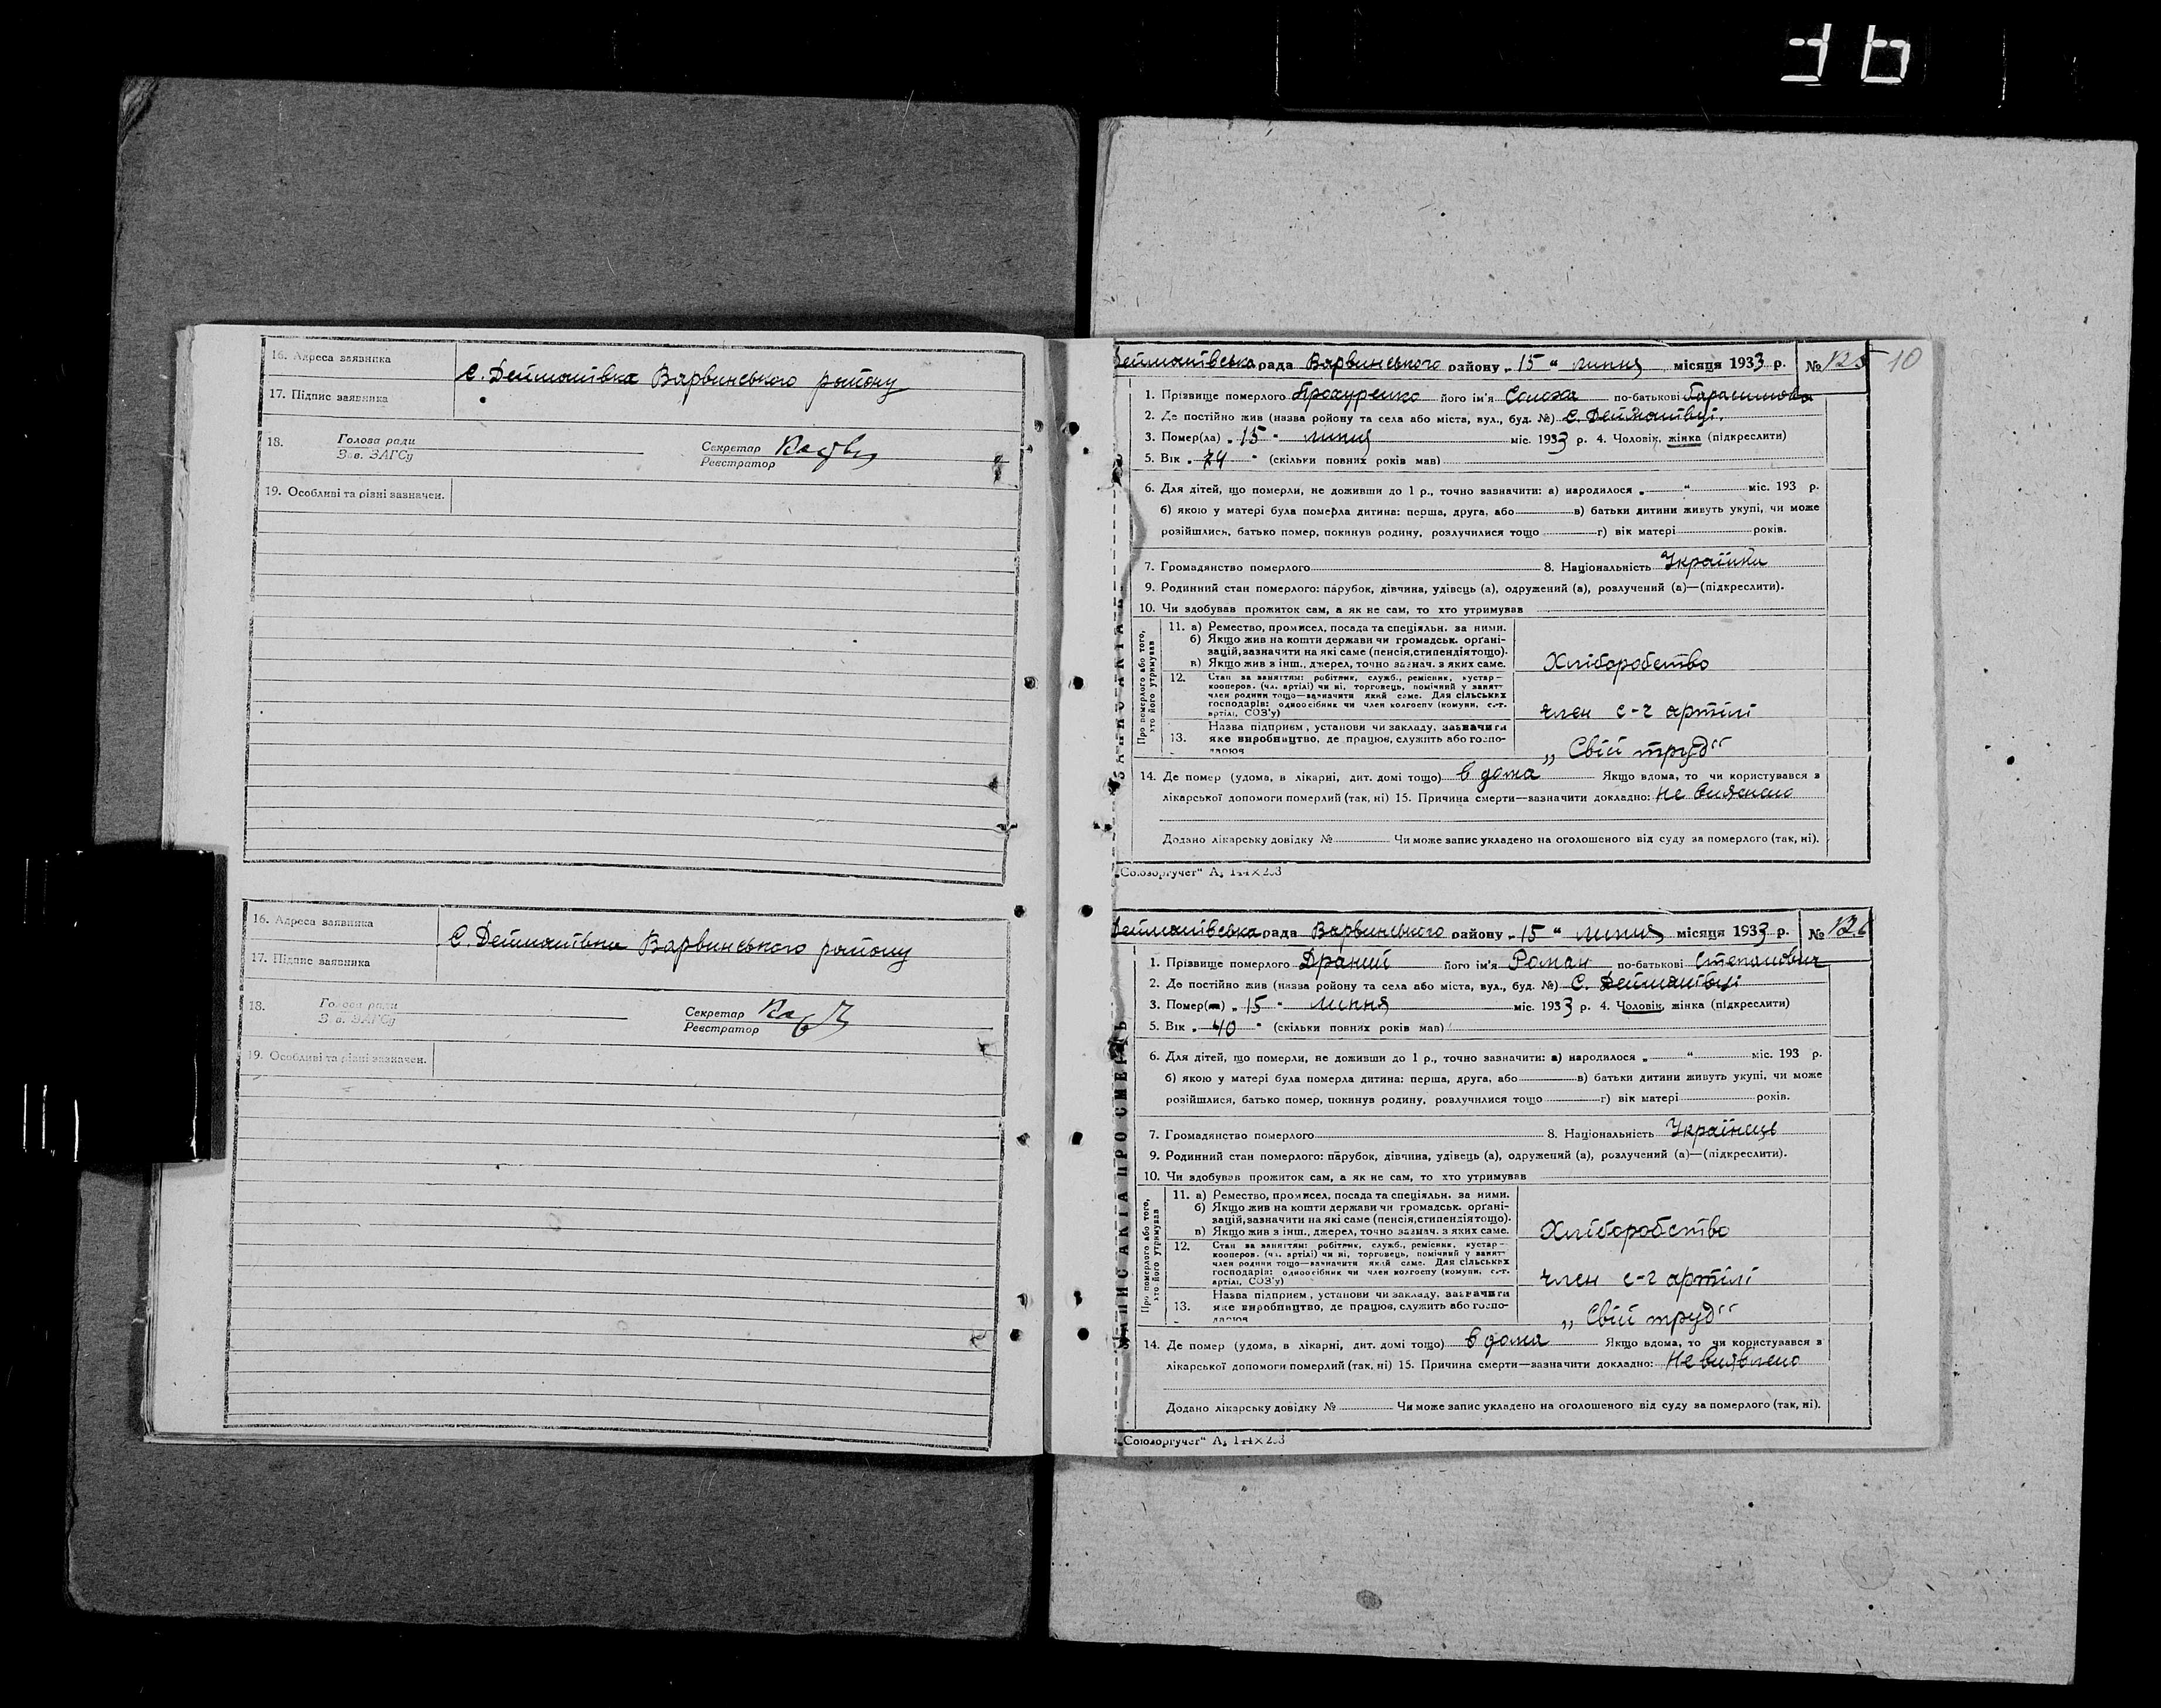 16. Адреса заявника
с. Дейманівка Варвинського району
17. Підпис заявника
18. Голова ради
Зав. ЗАГСу
Секретар
Реєстратор
19. Особливі та різні зазначен.
16. Адреса заявника
С. Дейманівка Варвинського району
17. Підпис заявника
18. Голова ради
Зав. ЗАГСу
Секретар
Реєстратор
19. Особливі та різні зазначен.
10
Дейманівська рада Варвинського району „ 15 “ липня місяця 1933 р. № 125
1. Прізвище померлого його ім'я по-батькові
2. Де постійно жив (назва району та села або міста, вул., буд. №) С. Дейманівці.
3. Помер(ла) „ 15 “ липня міс. 1933 р. 4. Чоловік, жінка (підкреслити)
5. Вік „ 74 “ (скільки повних років мав)
6. Для дітей, що померли, не доживши до 1 р., точно зазначити: а) народилося „ “ міс. 193 р.
б) якою у матері була померла дитина: перша, друга, або в) батьки дитини живуть укупі, чи може
розійшлись, батько помер, покинув родину, розлучилися тощо г) вік матері років.
7. Громадянство померлого 8. Національність Українка
9. Родинний стан померлого: парубок, дівчина, удівець (а), одружений (а), розлучений (а)—(підкреслити).
10. Чи здобував прожиток сам, а як не сам, то хто утримував
Про померлого або того, хто його утримував
11. а) Ремество, промисел, посада та спеціяльн. за ними.
б) Якщо жив на кошти держави чи громадськ. орґані-
зацій, зазначити на які саме (пенсія, стипендія тощо).
в) Якщо жив з інш., джерел, точно зазнач. з яких саме.
Хліборобство
12. Стан за заняттям: робітник, служб., ремісник, кустар—
кооперов. (чл. артілі) чи ні, торговець, помічний у занят-
член родини тощо—зазначити який саме. Для сільських
господарів: одноосібник чи член колгоспу (комуни, с.-г.
артілі, СОЗ'у)
член с-г артілі
13. Назва підприєм., установи чи закладу, зазначити
яке виробництво, де працює, служить або госпо-
дарює
„Свій труд“
14. Де помер (удома, в лікарні, дит. домі тощо) в дома Якщо вдома, то чи користувався з
лікарської допомоги померлий (так, ні) 15. Причина смерти—зазначити докладно: Не виявлено
Додано лікарську довідку № Чи може запис укладено на оголошеного від суду за померлого (так, ні).
„Союзоргучет“
Дейманівська рада Варвинського району „ 15 “ липня місяця 1933 р. № 126
1. Прізвище померлого Драний його ім'я Роман по-батькові Степанович
2. Де постійно жив (назва району та села або міста, вул., буд. №) С. Дейманівці
3. Помер „ 15 “ липня міс. 1933 р. 4. Чоловік, жінка (підкреслити)
5. Вік „ 40 “ (скільки повних років мав)
6. Для дітей, що померли, не доживши до 1 р., точно зазначити: а) народилося „ “ міс. 193 р.
б) якою у матері була померла дитина: перша, друга, або в) батьки дитини живуть укупі, чи може
розійшлися, батько помер, покинув родину, розлучилися тощо г) вік матері років.
7. Громадянство померлого 8. Національність Українець
9. Родинний стан померлого: парубок, дівчина, удівець (а), одружений (а), розлучений (а)—(підкреслити).
10. Чи здобував прожиток сам, а як не сам, то хто утримував
ЗАПИС АКТА ПРО СМЕРТЬ
Про померлого або того, хто його утримував
11. а) Ремество, промисел, посада та спеціяльн. за ними.
б) Якщо жив на кошти держави чи громадськ. орґані-
зацій, зазначити на які саме (пенсія, стипендія тощо).
в) Якщо жив з інш., джерел, точно зазнач. з яких саме.
Хліборобство
12. Стан за заняттям: робітник, служб., ремісник, кустар—
кооперов. (чл. артілі) чи ні, торговець, помічний у занят-
член родини тощо—зазначити який саме. Для сільських
господарів: одноосібник чи член колгоспу (комуни, с.-г.
артілі, СОЗ'у)
член с-г артілі
13. Назва підприєм., установи чи закладу, зазначити
яке виробництво, де працює, служить або госпо-
дарює
„Свій труд“
14. Де помер (удома, в лікарні, дит. домі тощо) в дома Якщо вдома, то чи користувався з
лікарської допомоги померлий (так, ні) 15. Причина смерти—зазначити докладно: Не виявлено
Додано лікарську довідку № Чи може запис укладено на оголошеного від суду за померлого (так, ні).
„Союзоргучет“